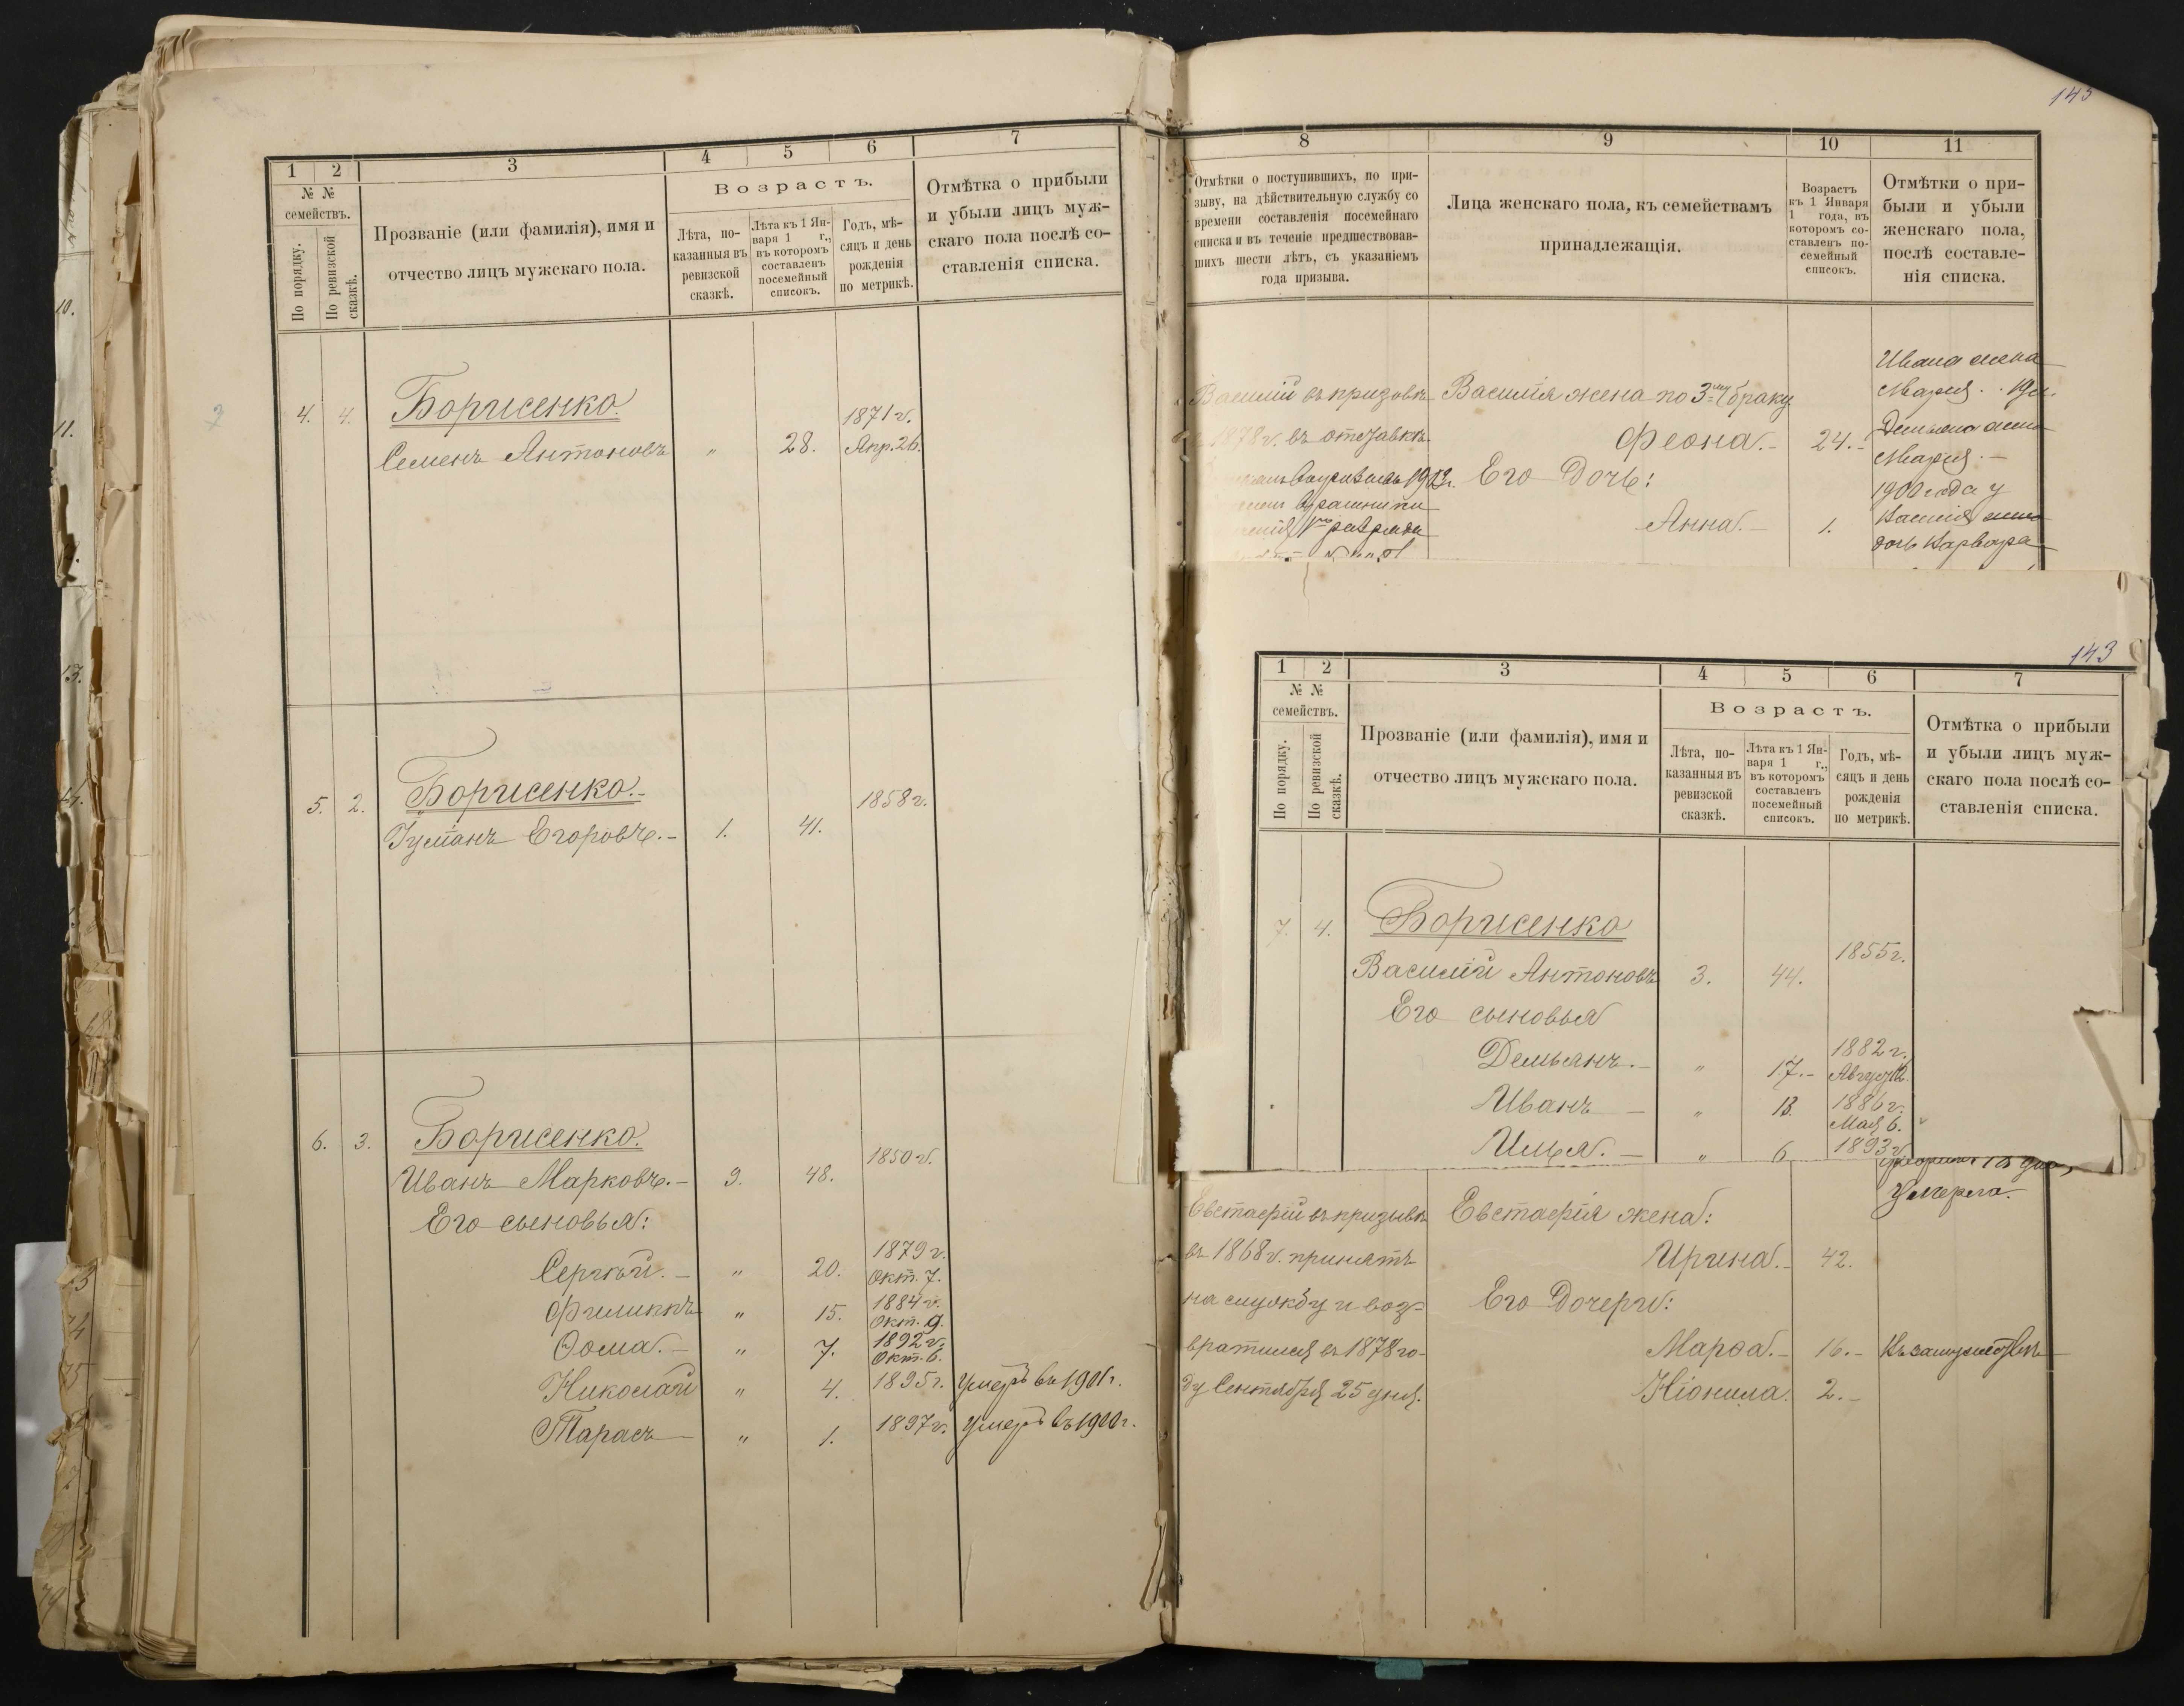 1 2 3 4 5 6 7
№ №
семействъ.
По порядку.
По ревизской сказкѣ.
Прозваніе (или фамилія), имя и
отчество лицъ мужскаго пола.
Возрастъ.
Лѣта, по-
казанныя въ
ревизской
сказкѣ.
Лѣта къ 1 Ян-
варя 1 г.,
въ которомъ
составленъ
посемейный
списокъ.
Годъ, мѣ-
сяцъ и день
рожденія
по метрикѣ.
Отмѣтка о прибыли
и убыли лицъ муж-
скаго пола послѣ со-
ставленія списка.
4. 4. Борисенко.
1871 г.
Семенъ Антоновъ „ 28. Апр. 26.
5. 2. Борисенко.-
1858 г.
Егоровъ.- 1. 41.
6. 3. Борисенко.
1850 г.
Иванъ Марковъ.- 9. 48.
Его сыновья:
1879 г.
Сергѣй.- „ 20. Окт. 7.
1884 г.
Филиппъ „ 15. Окт. 9.
1892 г.
Ѳома.- „ 7. Окт. 6.
Николай „ 4. 1895 г. Умеръ въ 1901 г.
Тарасъ „ 1. 1897 г. Умеръ въ 1900 г.
143
8 9 10 11
Отмѣтки о поступившихъ, по при-
зыву, на дѣйствительную службу со
времени составленія посемейнаго
списка и въ теченіе предшествовав-
шихъ шести лѣтъ, съ указаніемъ
года призыва.
Лица женскаго пола, къ семействамъ
принадлежащія.
Возрастъ
къ 1 Января
1 года, въ
которомъ со-
ставленъ по-
семейный
списокъ.
Отмѣтки о при-
были и убыли
женскаго пола,
послѣ составле-
нія списка.
Василій въ призовъ
1878 г. въ отставкѣ.
Василія жена по 3му браку
Феона.- 24.-
Его Дочь:
Анна.- 1.
Ивана жена
Мария.
Мария.-
1900 года у
дочь Варвара
143
1 2 3 4 5 6 7
№ №
семействъ.
По порядку.
По ревизской сказкѣ.
Прозваніе (или фамилія), имя и
отчество лицъ мужскаго пола.
Возрастъ.
Лѣта, по-
казанныя въ
ревизской
сказкѣ.
Лѣта къ 1 Ян-
варя 1 г.,
въ которомъ
составленъ
посемейный
списокъ.
Годъ, мѣ-
сяцъ и день
рожденія
по метрикѣ.
Отмѣтка о прибыли
и убыли лицъ муж-
скаго пола послѣ со-
ставленія списка.
7. 4. Борисенко
1855 г.
Василій Антоновъ 3. 44.
Его сыновья
1882 г.
Демьянъ.- „ 17.- Август.
Иванъ - „ 13. 1886 г.
Мая 6.
Илья.- „ 6 1893 г.
умерла.
Евстафій въ призывѣ
въ 1868 г. принятъ
на службу и воз-
вратился въ 1878 го-
ду Сентября 25 дня.
Евстафія жена:
Ирина.- 42.
Его Дочери:
Марѳа.- 16.-
Неонила. 2.-